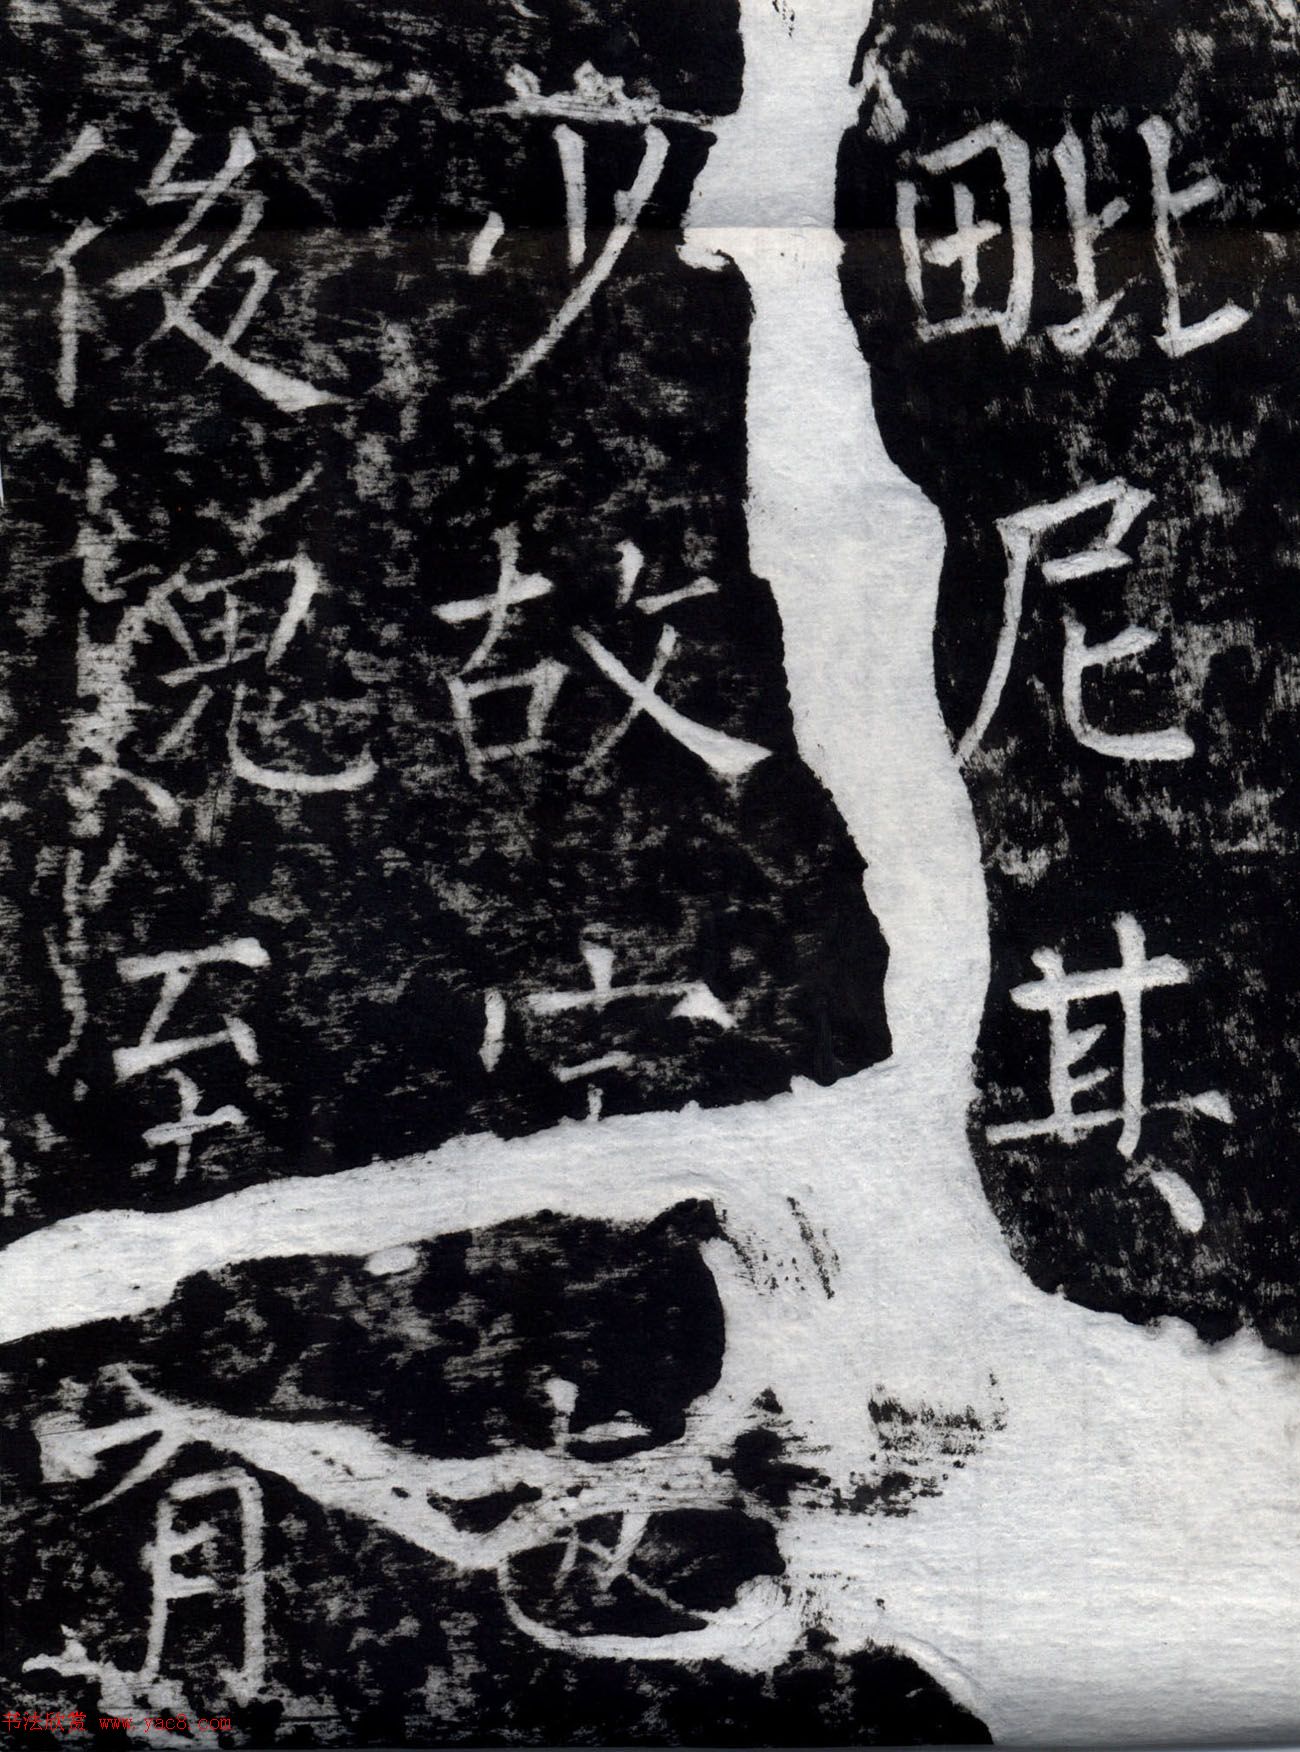 毗尼其
少故
後至有
书法欣赏 www.yac8.com